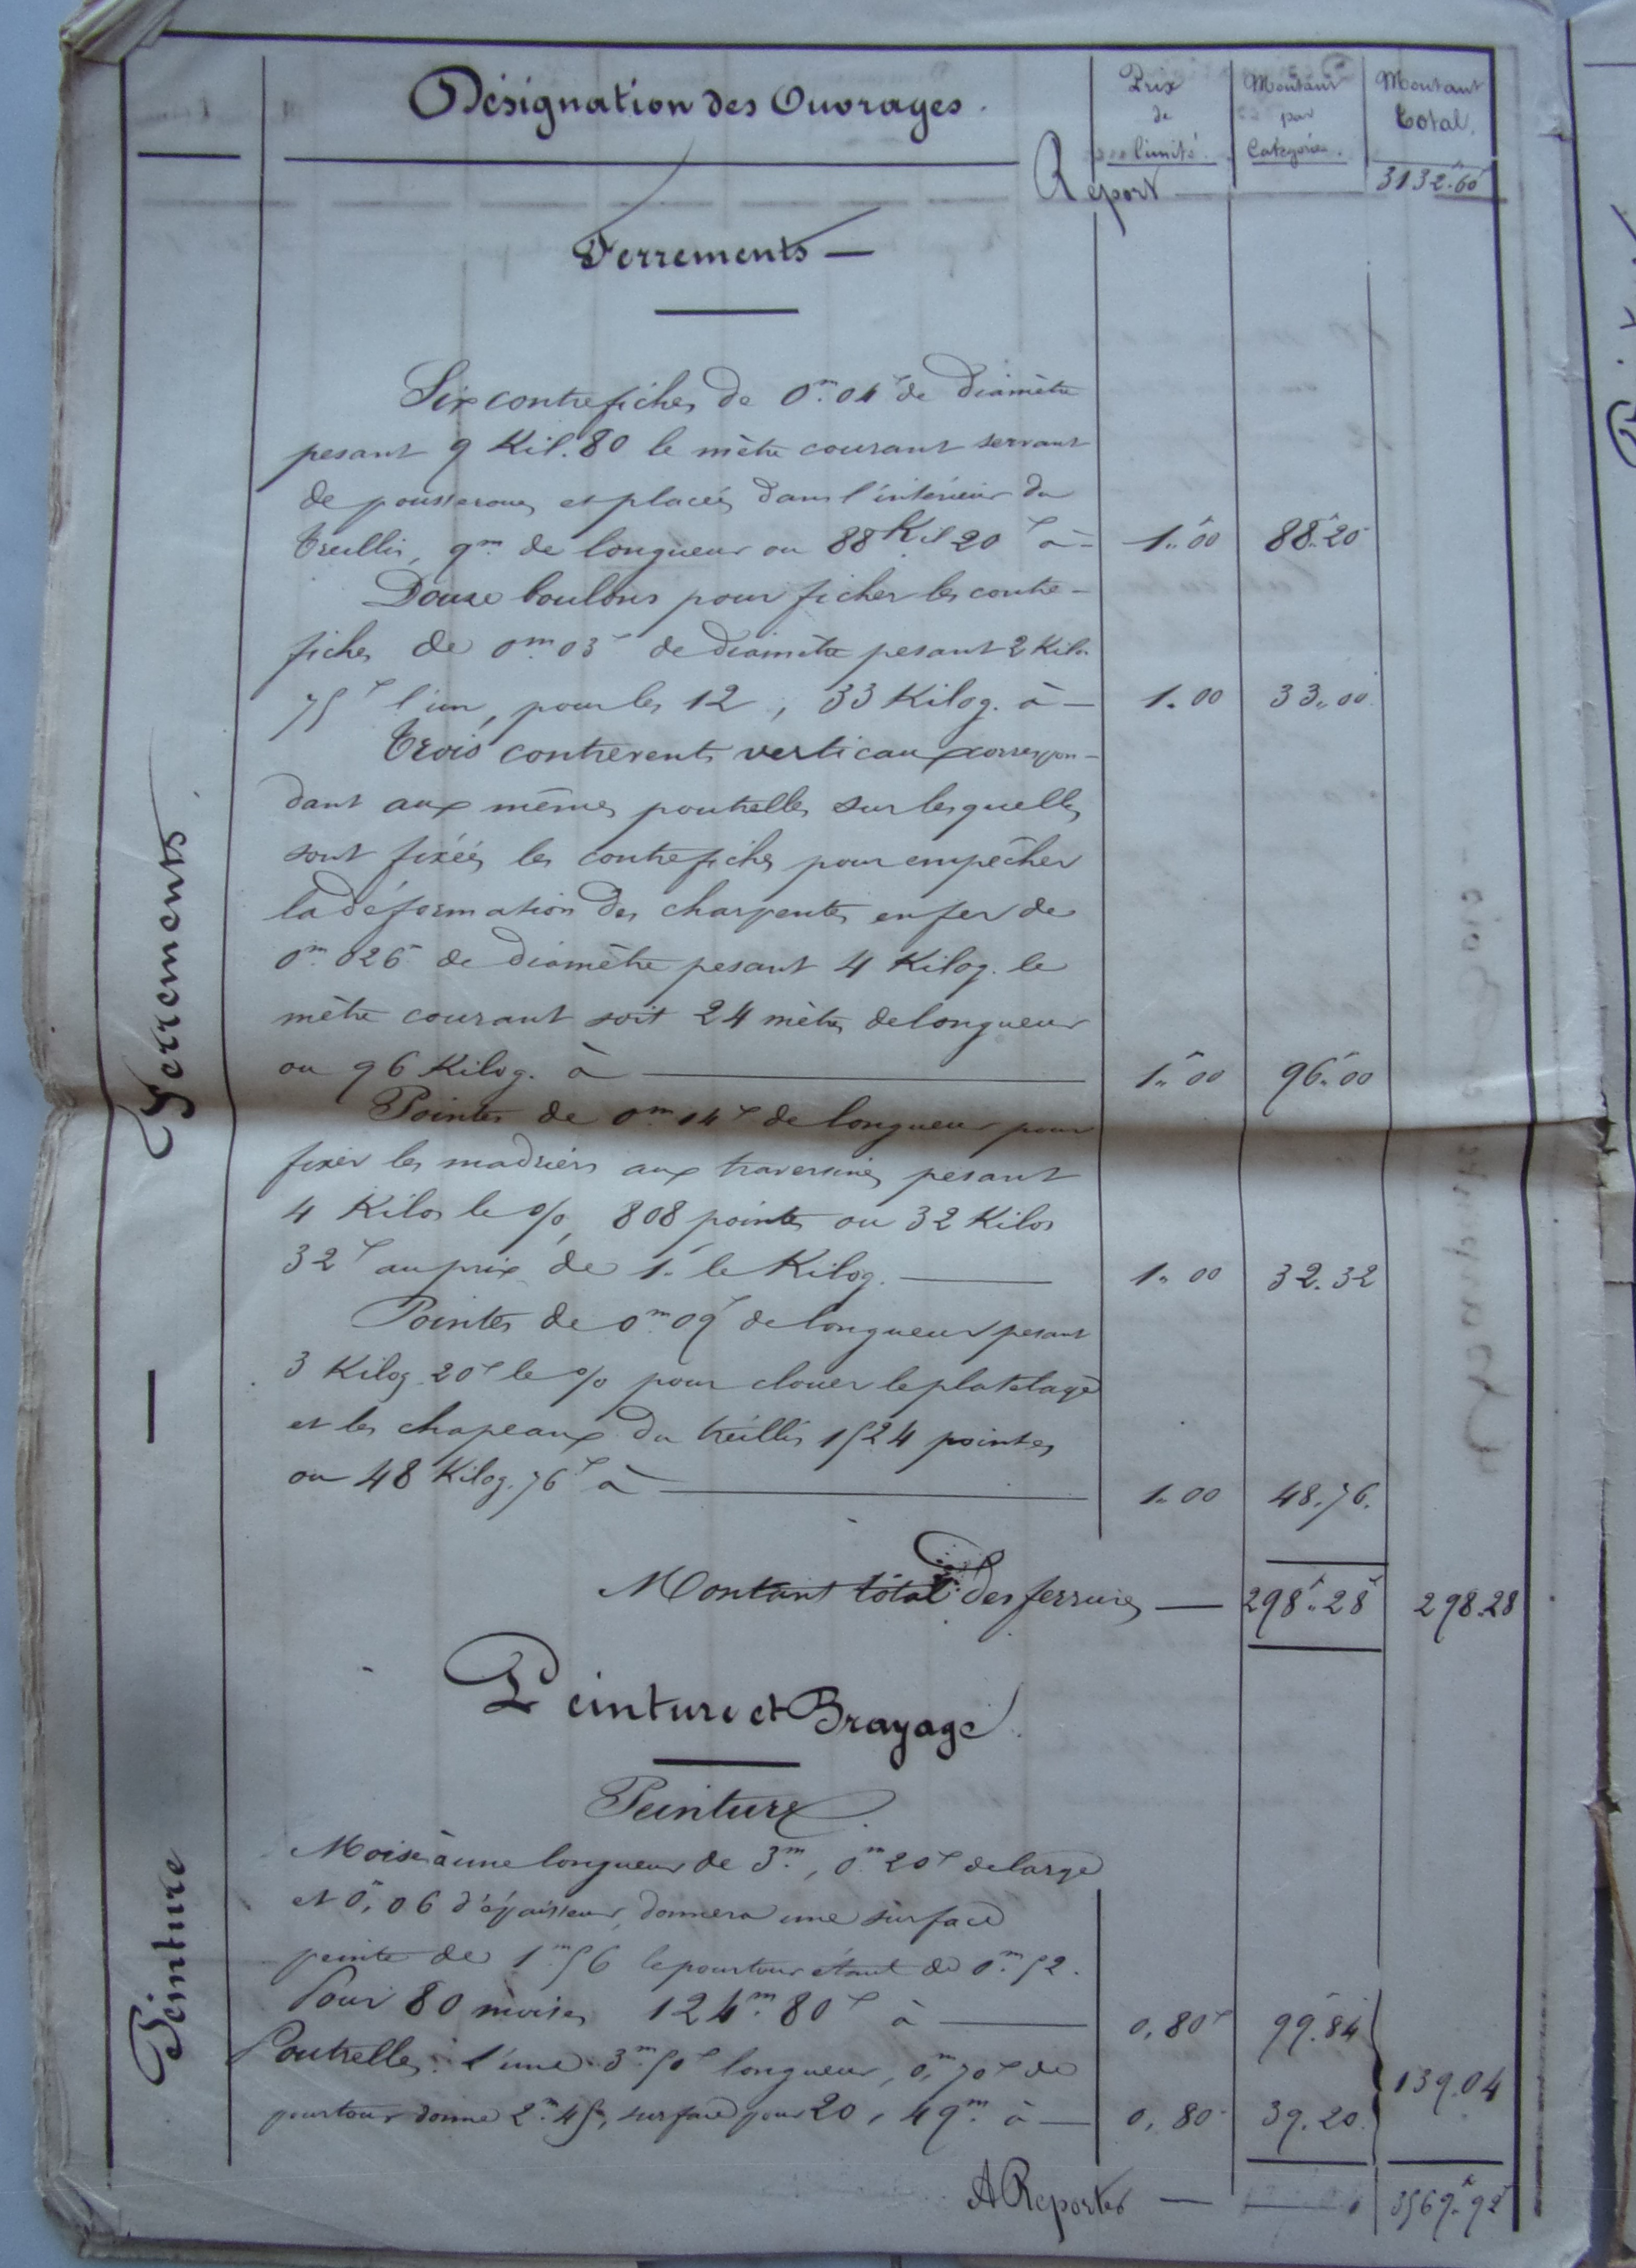 Désignation des Ouvrages.
Prix de l'unité.
Montant par Catégories.
Montant total.
Report 3132.60
Ferrements —
Six contrefiches de 0m.04c de diamètre
pesant 9 Kil.80 le mètre courant servant
de et placées dans l'intérieur du
treillis, 9m. de longueur ou 88Kil 20c à – 1.f00 88.f20
Douze boulons pour ficher les contre-
fiches de 0m.03c de diamètre pesant 2 Kilo.
75c l'un, pour les 12, 33 Kilog. à — 1.00 33.00
Trois contrevents verticaux correspon-
dant aux mêmes poutrelles sur lesquelles
sont fixées les contrefiches pour empêcher
la déformation des charpentes en fer de
0m.026 de diamètre pesant 4 Kilog. le
mètre courant soit 24 mètres de longueur
ou 96 Kilog. à — 1.f00 96.f00
Pointes de 0m.14c de longueur pour
fixer les madriers aux traversines pesant
4 Kilos le %, 808 pointes ou 32 Kilos
32c au prix de 1.f le Kilog. — 1.00 32.32
Pointes de 0m.09c de longueur pesant
3 Kilog. 20c le % pour clouer le platelage
et les chapeaux du treillis 1524 pointes
ou 48 Kilog. 76c à — 1.00 48.76.
Montant total des ferrures — 298.f28c 298.28
Peinture et Brayage.
Peinture.
Moise à une longueur de 3m., 0m.20c de large
et 0m,06 d'épaisseur, donnera une surface
peinte de 1m.56 le pourtour étant de 0m.52.
Pour 80 moises 124m.80c à — 0,80c 99.f84
Poutrelles: l'une 3m.50c longueur, 0m,70c de
pourtour donne 2m.45, surface pour 20, 49m. à — 0,80 39.20. 139.04
A Reporter — 3569.f92c
Ferrements
—
Peinture